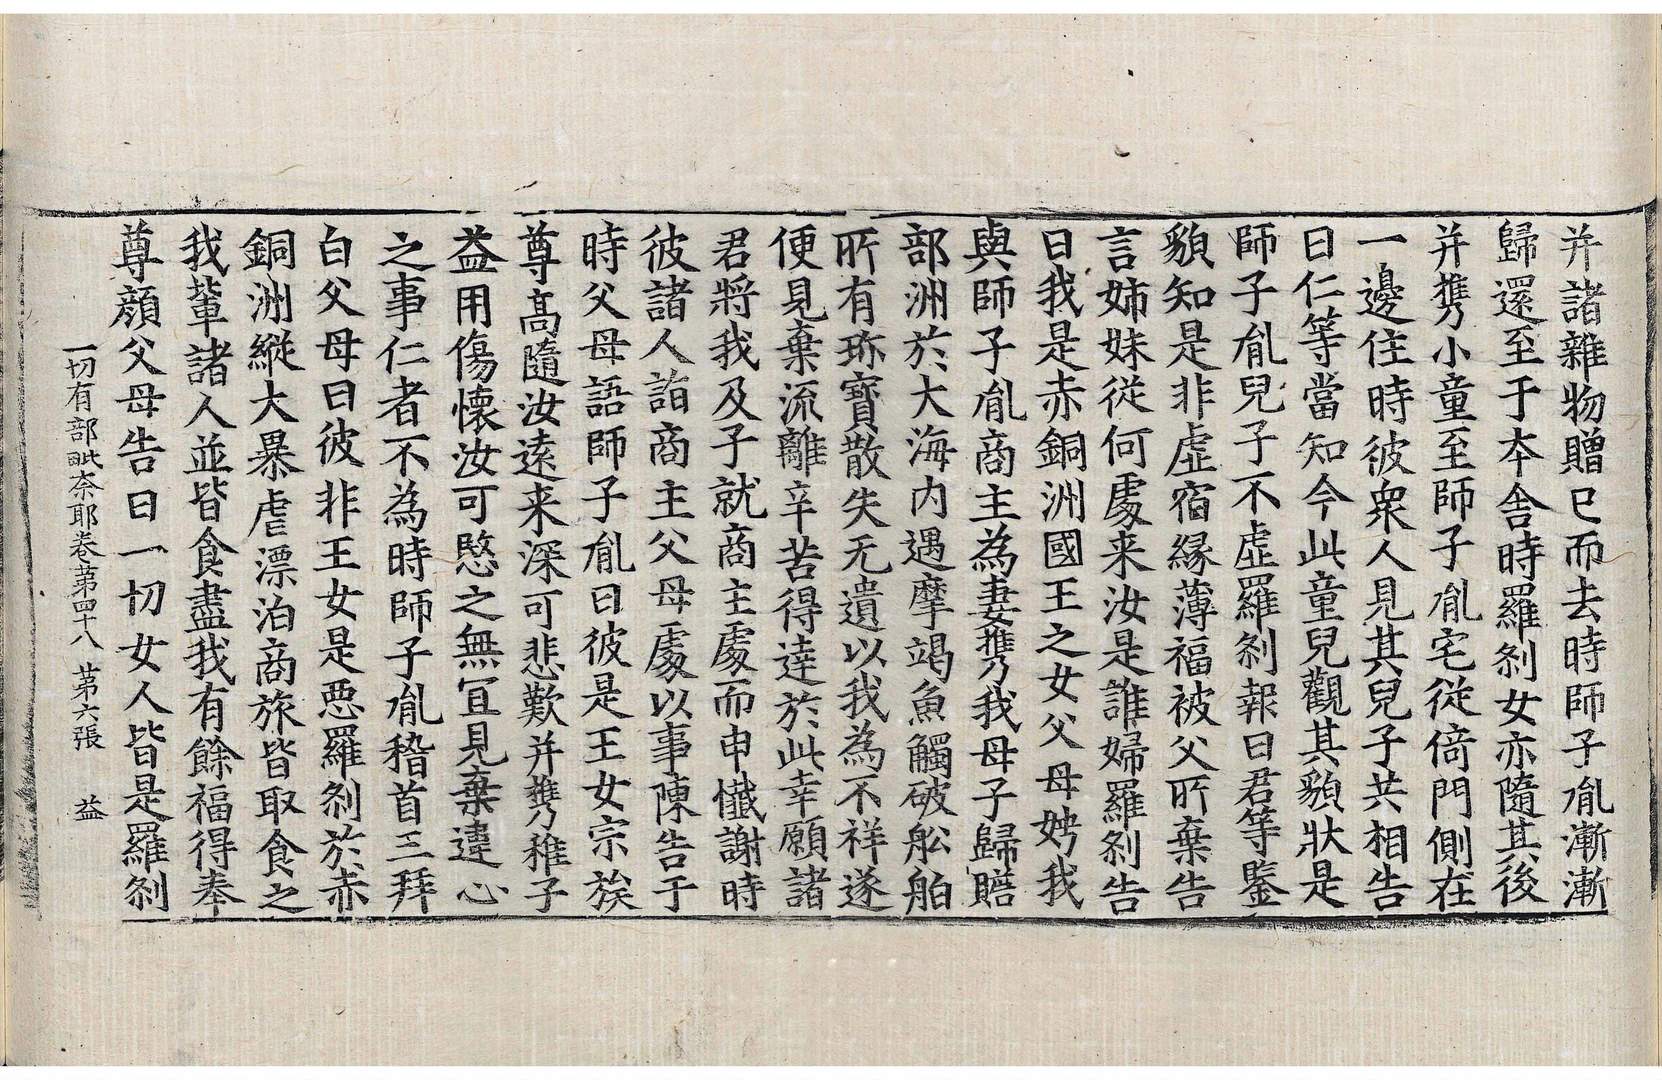 并諸雜物贈已而去時師子胤漸漸
歸還至于夲舎時羅剎女亦隨其後
并攜小童至師子胤宅從倚門側在
一邊住時彼衆人見其兒子共相告
曰仁等當知今此童兒觀其皃狀是
師子胤兒子不虛羅剎報曰君等鑒
皃知是非虛宿緣薄福被父所棄告
言姊妹從何處来汝是誰婦羅剎告
曰我是赤銅洲國王之女父母娉我
與師子胤商主為妻攜我母子歸贍
部洲於大海內遇摩竭魚觸破舩舶
所有珎寶散失无遺以我為不祥遂
便見棄流離辛苦得達於此幸願諸
君將我及子就商主處而申懺謝時
彼諸人詣商主父母處以事陳告于
時父母語師子胤曰彼是王女宗族
尊髙隨汝遠来深可悲歎并攜稚子
益用傷懷汝可愍之無宜見棄違心
之事仁者不為時師子胤稽首三拜
白父母曰彼非王女是惡羅剎於赤
銅洲縱大暴虐漂泊商旅皆取食之
我輩諸人並皆食盡我有餘福得奉
尊顏父母告曰一切女人皆是羅剎
一切有部毗奈耶卷第四十八 第六張 益